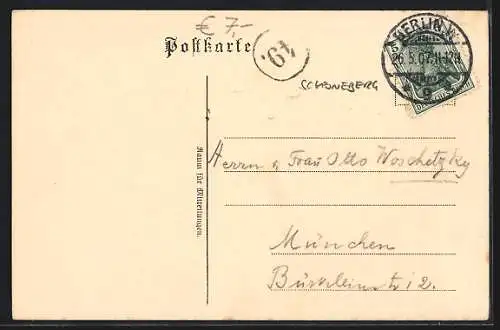 € 7,-
Postkarte
49.
SCHÖNEBERG
BERLIN W.
26.5.07.11-12V.
* 9 *
Raum für Mitteilungen.
Herrn u. Frau Otto Woschetzky
München
2.